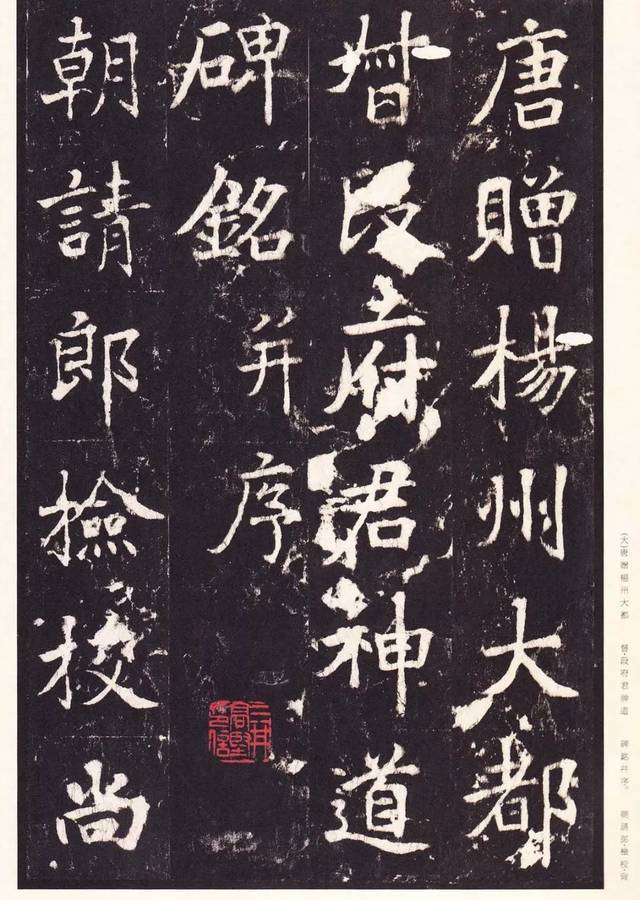 唐贈楊州大都
督段府君神道
碑銘并序
朝請郎撿挍尚
(大)唐贈楊州大都　督・段府君神道　碑銘幷序。　朝請郎・檢校・尚